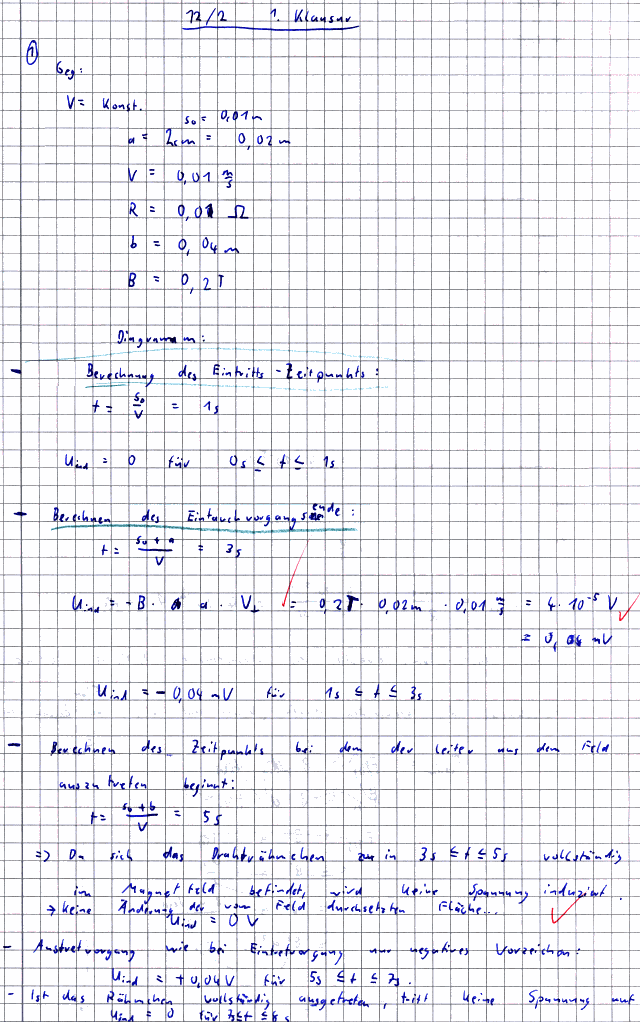 12/2 1. Klausur
①
Geg:
V = Konst.
s₀ = 0,01m
a = 2cm = 0,02m
V = 0,01 m/s
R = 0,01 Ω
b = 0,04 m
B = 0,2 T
Diagramm:
- Berechnung des Eintritts-Zeitpunkts:
t = s₀/V = 1s
Uind = 0 für 0s ≤ t ≤ 1s
- Berechnen des Eintauchvorgangsende:
t = (s₀ + a)/V = 3s
Uind = -B · a · V⊥ = 0,2T · 0,02m · 0,01 m/s = 4 · 10⁻⁵ V
= 0,04 mV
Uind = - 0,04 mV für 1s ≤ t ≤ 3s
- Berechnen des Zeitpunkts bei dem der Leiter aus dem Feld
auszutreten beginnt:
t = (s₀ + b)/V = 5s
=> Da sich das Drahträhmchen in 3s ≤ t ≤ 5s vollständig
im Magnetfeld befindet, wird keine Spannung induziert.
→ keine Änderung der vom Feld durchsetzten Fläche...
Uind = 0 V
- Austretvorgang wie bei Eintretvorgang nur negatives Vorzeichen:
Uind = + 0,04V für 5s ≤ t ≤ 7s.
- Ist das Rähmchen vollständig ausgetreten, tritt keine Spannung auf
Uind = 0 für 7s ≤ t ≤ 8s